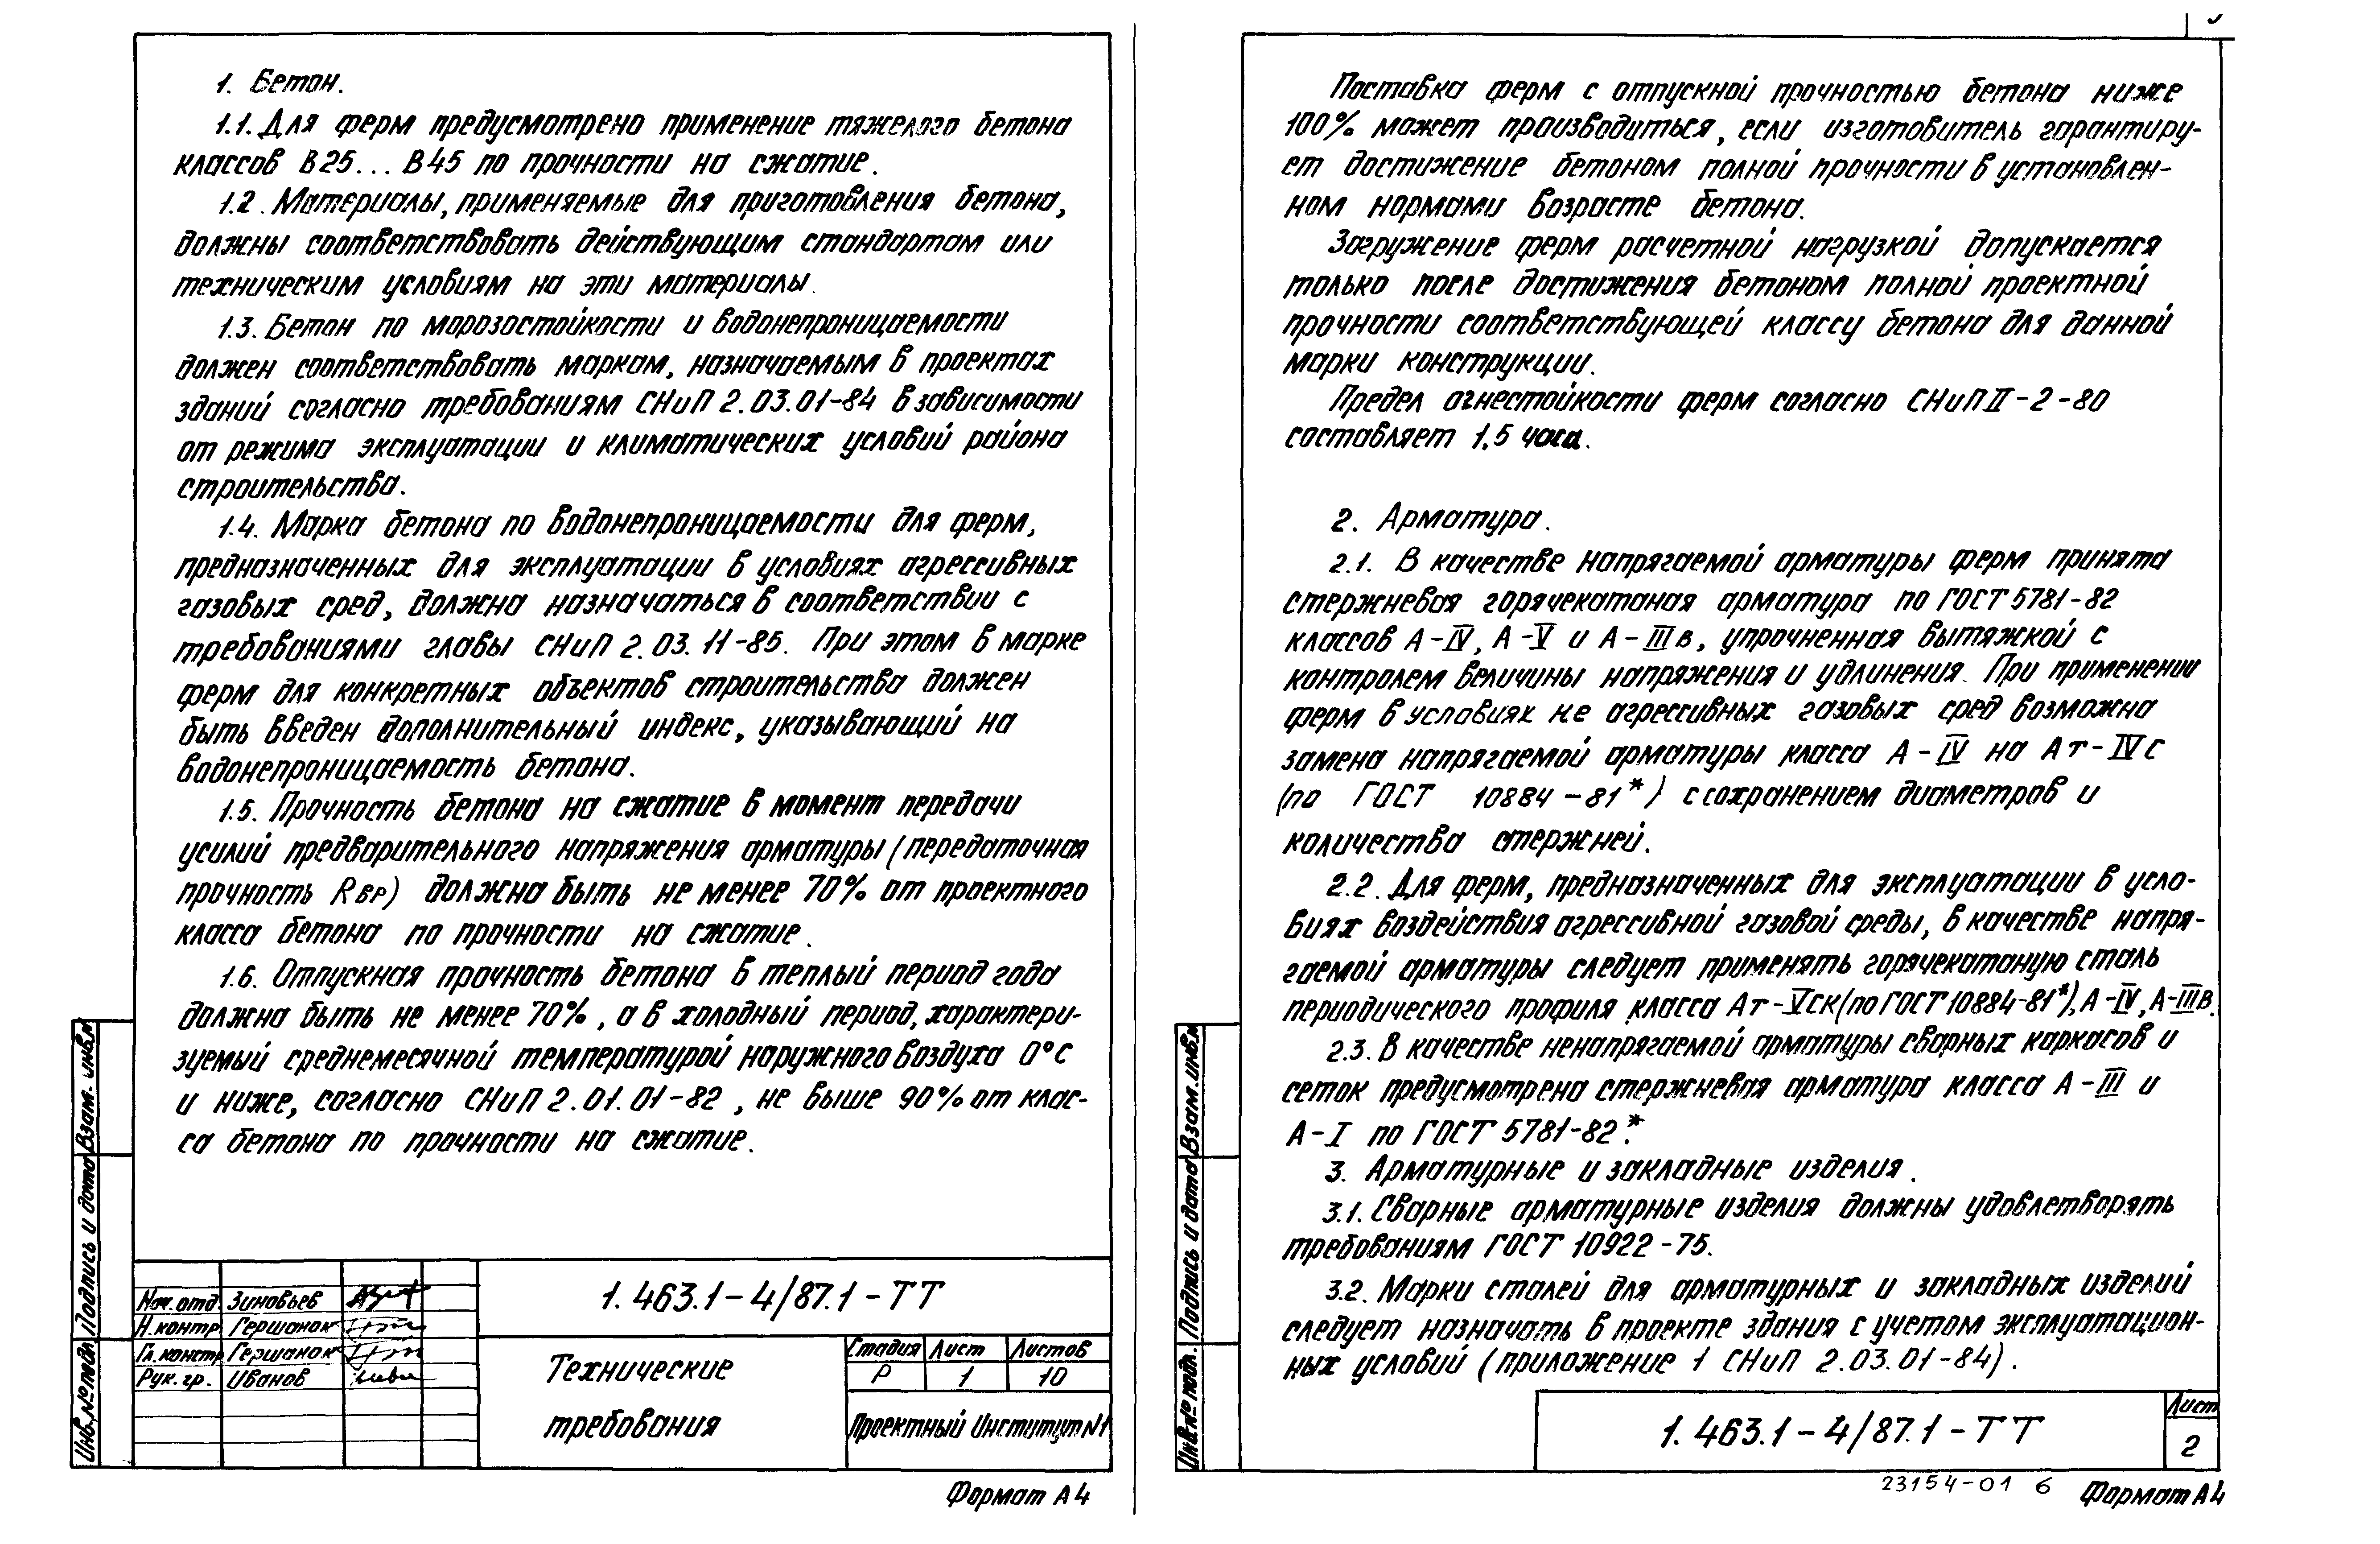 1. Бетон.
1.1. Для ферм предусмотрено применение тяжелого бетона
классов В25... В45 по прочности на сжатие.
1.2. Материалы, применяемые для приготовления бетона,
должны соответствовать действующим стандартам или
техническим условиям на эти материалы.
1.3. Бетон по морозостойкости и водонепроницаемости
должен соответствовать маркам, назначаемым в проектах
зданий согласно требованиям СНиП 2.03.01-84 в зависимости
от режима эксплуатации и климатических условий района
строительства.
1.4. Марка бетона по водонепроницаемости для ферм,
предназначенных для эксплуатации в условиях агрессивных
газовых сред, должна назначаться в соответствии с
требованиями главы СНиП 2.03.11-85. При этом в марке
ферм для конкретных объектов строительства должен
быть введен дополнительный индекс, указывающий на
водонепроницаемость бетона.
1.5. Прочность бетона на сжатие в момент передачи
усилий предварительного напряжения арматуры (передаточная
прочность Rвр) должна быть не менее 70% от проектного
класса бетона по прочности на сжатие.
1.6. Отпускная прочность бетона в теплый период года
должна быть не менее 70%, а в холодный период, характери-
зуемый среднемесячной температурой наружного воздуха 0°С
и ниже, согласно СНиП 2.01.01-82, не выше 90% от клас-
са бетона по прочности на сжатие.
Инв. № подл. Подпись и дата Взам. инв. №
Нач. отд. Зиновьев
Н. контр. Гершанок
Гл. констр. Гершанок
Рук. гр. Иванов
1.463.1-4/87.1-ТТ
Технические
требования
Стадия Лист Листов
Р 1 10
Проектный Институт №1
Формат А4
Поставка ферм с отпускной прочностью бетона ниже
100% может производиться, если изготовитель гарантиру-
ет достижение бетоном полной прочности в установлен-
ном нормами возрасте бетона.
Загружение ферм расчетной нагрузкой допускается
только после достижения бетоном полной проектной
прочности соответствующей классу бетона для данной
марки конструкции.
Предел огнестойкости ферм согласно СНиП II-2-80
составляет 1,5 часа.
2. Арматура.
2.1. В качестве напрягаемой арматуры ферм принята
стержневая горячекатаная арматура по ГОСТ 5781-82
классов А-IV, А-V и А-IIIв, упрочненная вытяжкой с
контролем величины напряжения и удлинения. При применении
ферм в условиях не агрессивных газовых сред возможна
замена напрягаемой арматуры класса А-IV на Ат-IVС
(по ГОСТ 10884-81*) с сохранением диаметров и
количества стержней.
2.2. Для ферм, предназначенных для эксплуатации в усло-
виях воздействия агрессивной газовой среды, в качестве напря-
гаемой арматуры следует применять горячекатаную сталь
периодического профиля класса Ат-VСК (по ГОСТ 10884-81*), А-IV, А-IIIв.
2.3. В качестве ненапрягаемой арматуры сварных каркасов и
сеток предусмотрена стержневая арматура класса А-III и
А-I по ГОСТ 5781-82*.
3. Арматурные и закладные изделия.
3.1. Сварные арматурные изделия должны удовлетворять
требованиям ГОСТ 10922-75.
3.2. Марки сталей для арматурных и закладных изделий
следует назначать в проекте здания с учетом эксплуатацион-
ных условий (приложение 1 СНиП 2.03.01-84).
Инв. № подл. Подпись и дата Взам. инв. №
1.463.1-4/87.1-ТТ
Лист
2
23154-01 6
Формат А4